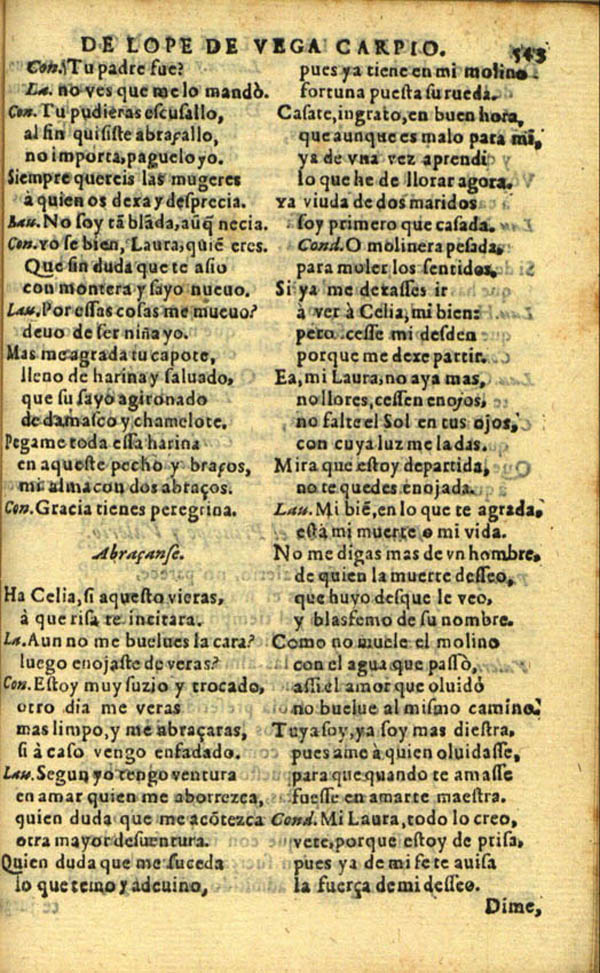 DE LOPE DE VEGA CARPIO. 543
Con. Tu padre fue?
La. no ves que me lo mandò.
Con. Tu pudieras escusallo,
al fin quisiste abraçallo,
no importa, paguelo yo.
Siempre quereis las mugeres
à quien os dexa y desprecia.
Lau. No soy tã blãda, aũq̃ necia.
Con. yo se bien, Laura, quiẽ eres.
Que sin duda que te asio
con montera y sayo nueuo.
Lau. Por essas cosas me mueuo?
deuo de ser niña yo.
Mas me agrada tu capote,
lleno de harina y saluado,
que su sayo agironado
de damasco y chamelote.
Pegame toda essa harina
en aqueste pecho y braços,
mi alma con dos abraços.
Con. Gracia tienes peregrina.
Abraçanse.
Ha Celia, si aquesto vieras,
à que risa te incitara.
La. Aun no me buelues la cara?
luego enojaste de veras?
Con. Estoy muy suzio y trocado,
otro dia me veras
mas limpo, y me abraçaras,
si à caso vengo enfadado.
Lau. Segun yo tengo ventura
en amar quien me aborrezca,
quien duda que me acõtezca
otra mayor desuentura.
Quien duda que me suceda
lo que temo y adeuino,
pues ya tiene en mi molino
fortuna puesta su rueda.
Casate, ingrato, en buen hora,
que aunque es malo para mi,
ya de vna vez aprendi
lo que he de llorar agora.
ya viuda de dos maridos
soy primero que casada.
Cond. O molinera pesada,
para moler los sentidos,
Si ya me dexasses ir
à ver à Celia, mi bien:
pero cesse mi desden
porque me dexe partir.
Ea, mi Laura, no aya mas,
no llores, cessen enojos,
no falte el Sol en tus ojos,
con cuya luz me la das.
Mira que estoy departida,
no te quedes enojada.
Lau. Mi biẽ, en lo que te agrada,
està mi muerte o mi vida.
No me digas mas de vn hombre,
de quien la muerte desseo,
que huyo desque le veo,
y blasfemo de su nombre.
Como no muele el molino
con el agua que passò,
assi el amor que oluidó
no buelue al mismo camino.
Tuya soy, ya soy mas diestra,
pues ame à quien oluidasse,
para que quando te amasse
fuesse en amarte maestra.
Cond. Mi Laura, todo lo creo,
vete, porque estoy de prisa,
pues ya de mi fe te auisa
la fuerça de mi desseo.
Dime,